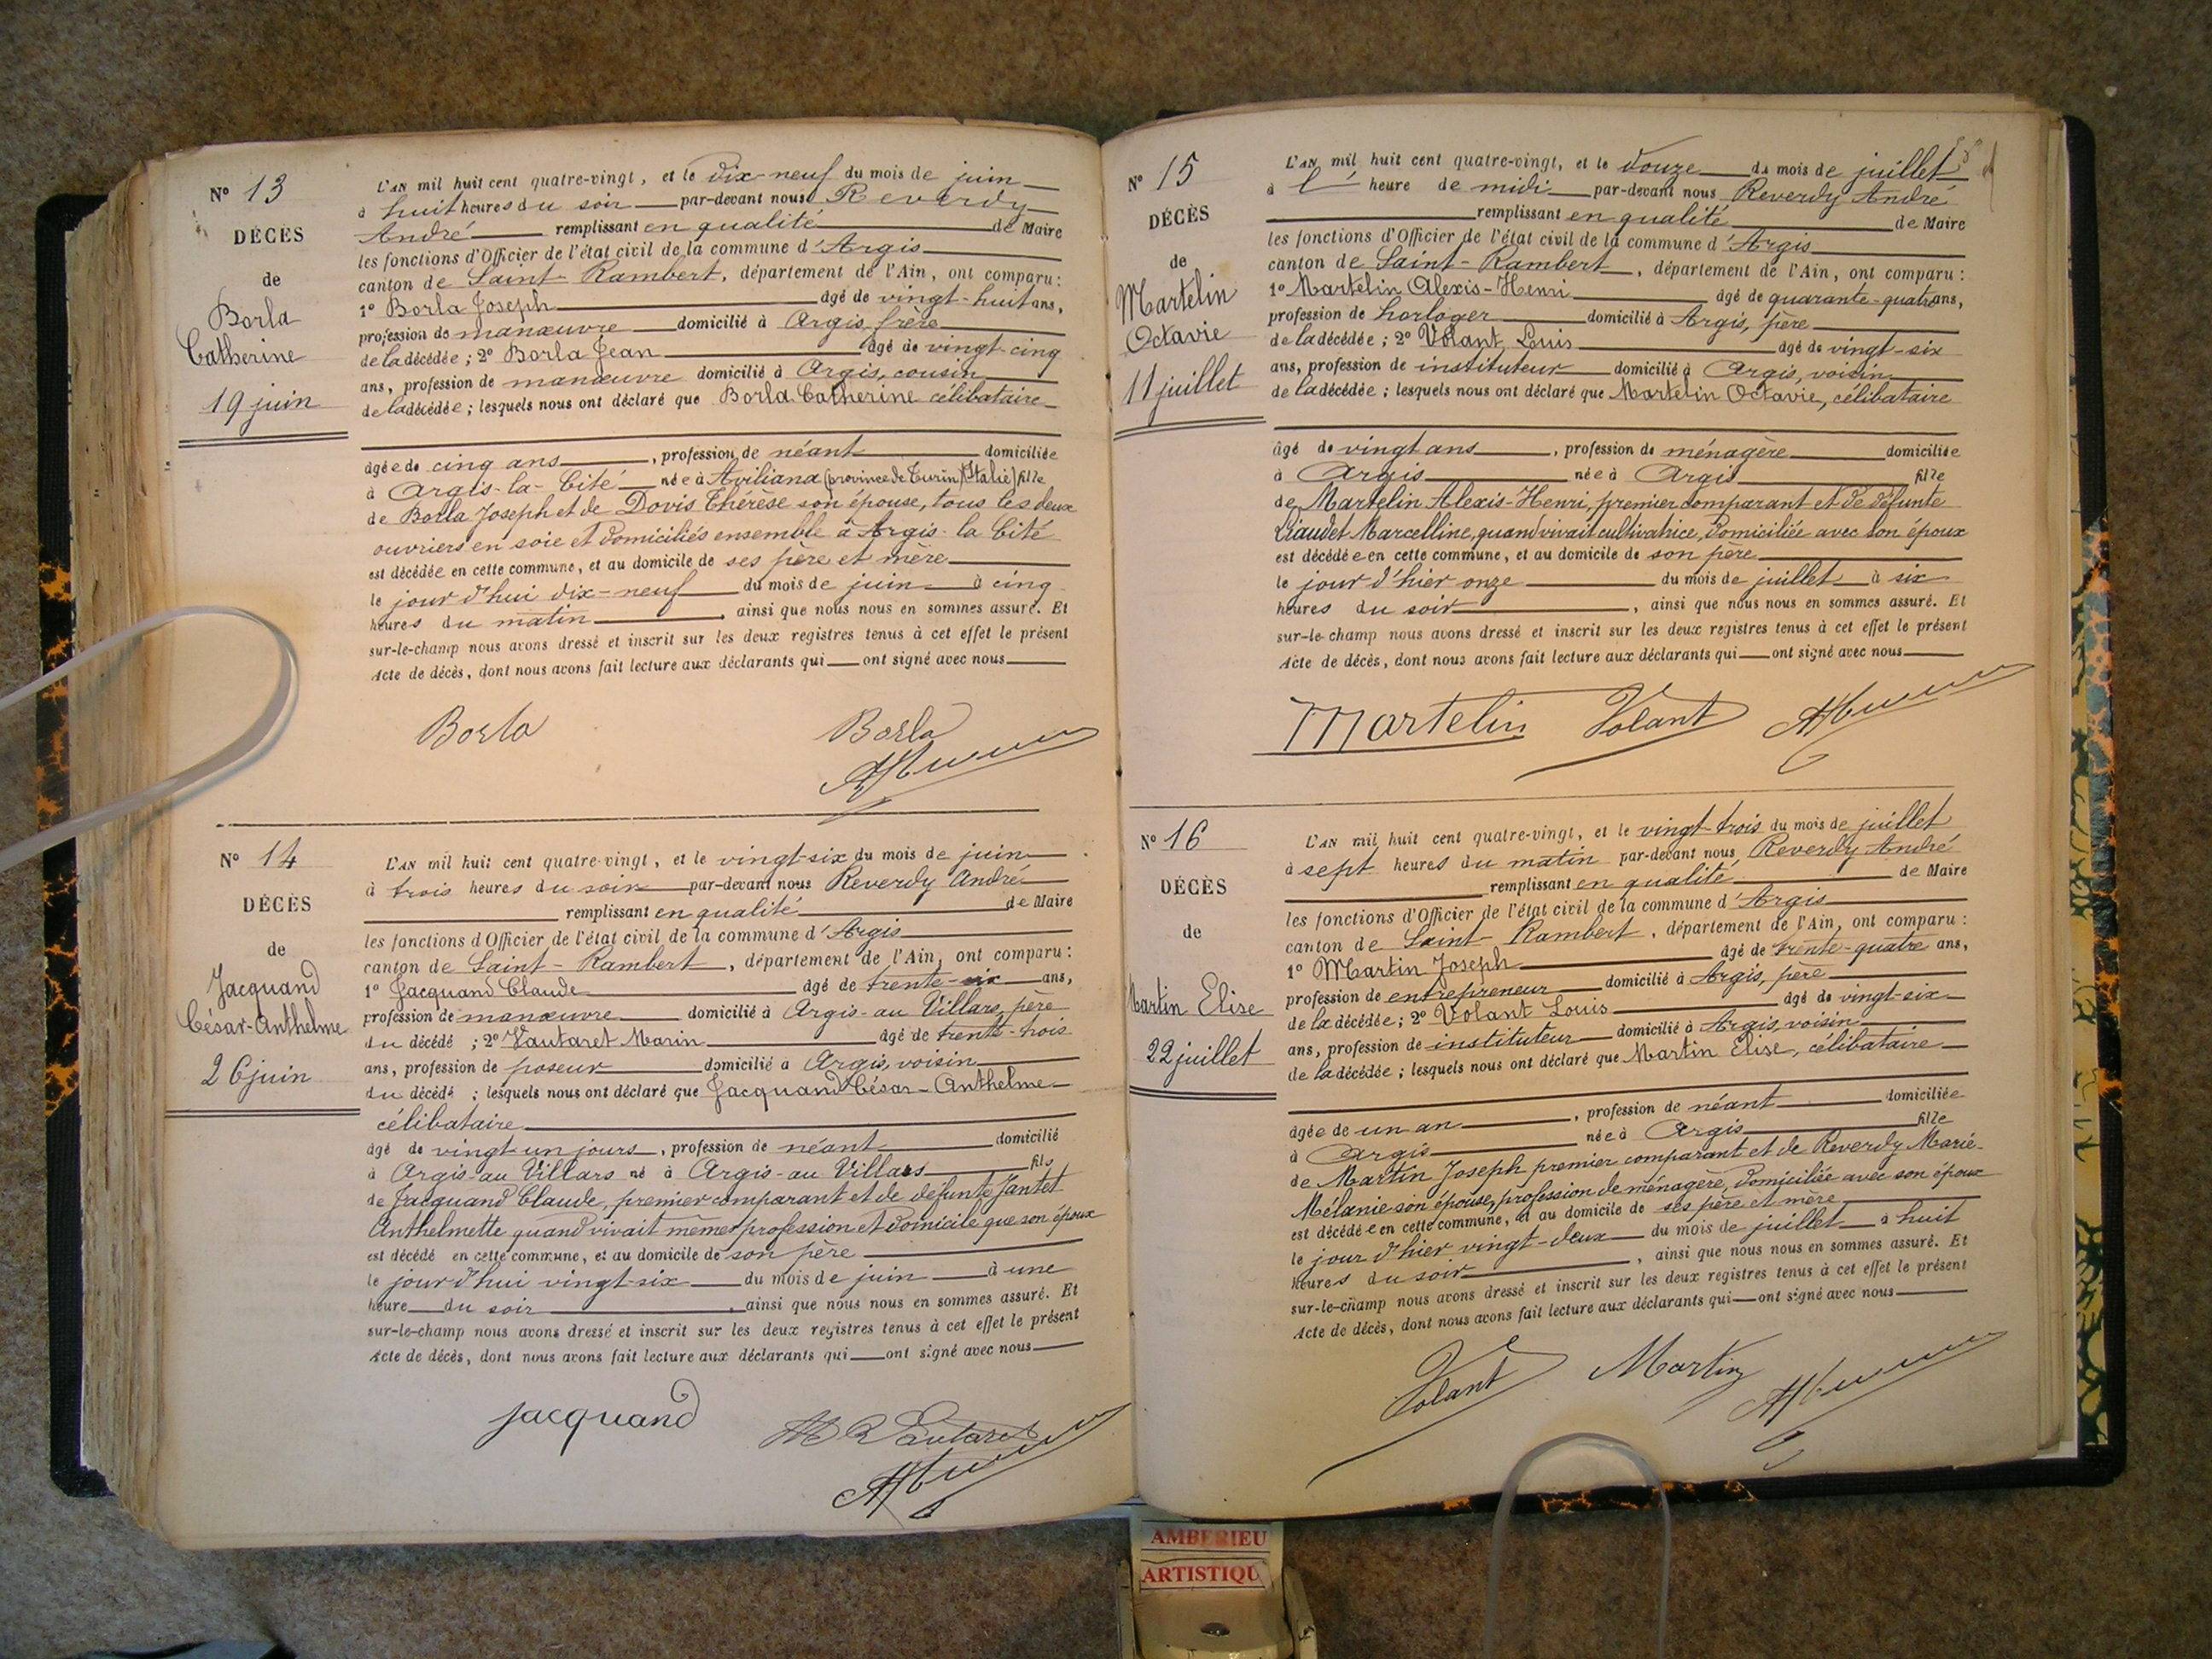 N° 13
DÉCÈS
de
Borla
Catherine
19 juin
L'AN mil huit cent quatre-vingt, et le dix-neuf du mois de juin
à huit heures du soir par-devant nous Reverdy
André remplissant en qualité de Maire
les fonctions d'Officier de l'état civil de la commune d'Argis
canton de Saint-Rambert, département de l'Ain, ont comparu :
1° Borla Joseph âgé de vingt-huit ans,
profession de manœuvre domicilié à Argis, frère
de la décédée ; 2° Borla Jean âgé de vingt-cinq
ans, profession de manœuvre domicilié à Argis, cousin
de la décédée ; lesquels nous ont déclaré que Borla Catherine célibataire
âgée de cinq ans, profession de néant domiciliée
à Argis-la-Cité née à Aviliana (province de Turin) (Italie) fille
de Borla Joseph et de Dovis Thérèse son épouse, tous les deux
ouvriers en soie et domiciliés ensemble à Argis-la Cité
est décédée en cette commune, et au domicile de ses père et mère
le jour d'hui dix-neuf du mois de juin à cinq
heures du matin, ainsi que nous nous en sommes assuré. Et
sur-le-champ nous avons dressé et inscrit sur les deux registres tenus à cet effet le présent
Acte de décès, dont nous avons fait lecture aux déclarants qui ont signé avec nous
Borla Borla
N° 14
DÉCÈS
de
Jacquand
César-Anthelme
26 juin
L'AN mil huit cent quatre-vingt, et le vingt-six du mois de juin
à trois heures du soir par-devant nous Reverdy André
remplissant en qualité de Maire
les fonctions d'Officier de l'état civil de la commune d'Argis
canton de Saint-Rambert, département de l'Ain, ont comparu :
1° Jacquand Claude âgé de trente-six ans,
profession de manœuvre domicilié à Argis-au Villars, père
du décédé ; 2° Vautaret Marin âgé de trente-trois
ans, profession de poseur domicilié à Argis, voisin
du décédé ; lesquels nous ont déclaré que Jacquand César-Anthelme
célibataire
âgé de vingt-un jours, profession de néant domicilié
à Argis-au Villars né à Argis-au Villars fils
de Jacquand Claude, premier comparant et de défunte Jantet
Anthelmette quand vivait même profession et domicile que son époux
est décédé en cette commune, et au domicile de son père
le jour d'hui vingt-six du mois de juin à une
heure du soir, ainsi que nous nous en sommes assuré. Et
sur-le-champ nous avons dressé et inscrit sur les deux registres tenus à cet effet le présent
Acte de décès, dont nous avons fait lecture aux déclarants qui ont signé avec nous
Jacquand Vautaret
N° 15
DÉCÈS
de
Martelin
Octavie
11 juillet
L'AN mil huit cent quatre-vingt, et le douze du mois de juillet
à l' heure de midi par-devant nous Reverdy André
remplissant en qualité de Maire
les fonctions d'Officier de l'état civil de la commune d'Argis
canton de Saint-Rambert, département de l'Ain, ont comparu :
1° Martelin Alexis-Henri âgé de quarante-quatre ans,
profession de horloger domicilié à Argis, père
de la décédée ; 2° Volant Louis âgé de vingt-six
ans, profession de instituteur domicilié à Argis, voisin
de la décédée ; lesquels nous ont déclaré que Martelin Octavie, célibataire
âgé de vingt ans, profession de ménagère domiciliée
à Argis née à Argis fille
de Martelin Alexis-Henri, premier comparant et de défunte
Marcelline, quand vivait cultivatrice, domiciliée avec son époux
est décédée en cette commune, et au domicile de son père
le jour d'hier onze du mois de juillet à six
heures du soir, ainsi que nous nous en sommes assuré. Et
sur-le-champ nous avons dressé et inscrit sur les deux registres tenus à cet effet le présent
Acte de décès, dont nous avons fait lecture aux déclarants qui ont signé avec nous
Martelin Volant
N° 16
DÉCÈS
de
Martin Elise
22 juillet
L'AN mil huit cent quatre-vingt, et le vingt-trois du mois de juillet
à sept heures du matin par-devant nous Reverdy André
remplissant en qualité de Maire
les fonctions d'Officier de l'état civil de la commune d'Argis
canton de Saint-Rambert, département de l'Ain, ont comparu :
1° Martin Joseph âgé de trente-quatre ans,
profession de entrepreneur domicilié à Argis, père
de la décédée ; 2° Volant Louis âgé de vingt-six
ans, profession de instituteur domicilié à Argis, voisin
de la décédée ; lesquels nous ont déclaré que Martin Elise, célibataire
âgée de un an, profession de néant domiciliée
à Argis née à Argis fille
de Martin Joseph premier comparant et de Reverdy Marie-
Mélanie son épouse, profession de ménagère, domiciliée avec son époux
est décédée en cette commune, et au domicile de ses père et mère
le jour d'hier vingt-deux du mois de juillet à huit
heures du soir, ainsi que nous nous en sommes assuré. Et
sur-le-champ nous avons dressé et inscrit sur les deux registres tenus à cet effet le présent
Acte de décès, dont nous avons fait lecture aux déclarants qui ont signé avec nous
Volant Martin
AMBERIEU
ARTISTIQU